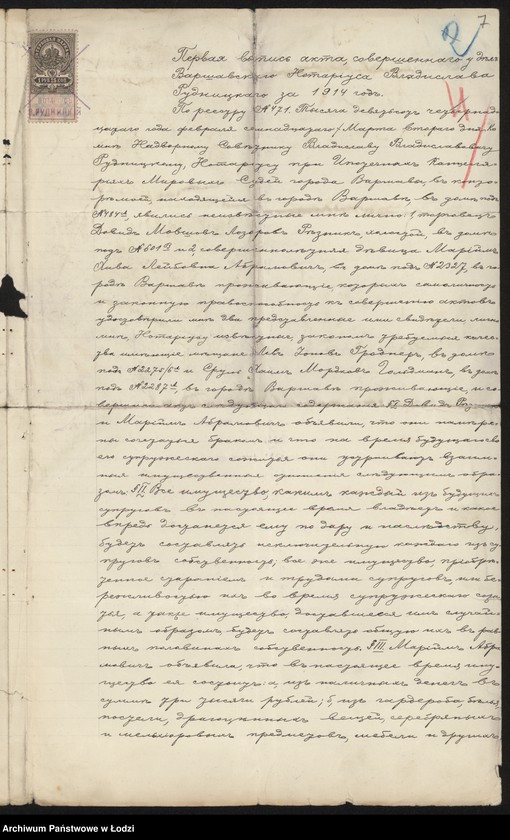 2 7
Первая выпись акта, совершеннаго у дѣлъ
Варшавскаго Нотаріуса Владислава
Рудницкаго за 1914 годъ.
По реестру № 471. Тысяча девятьсотъ четырнад-
цатаго года февраля семнадцатаго/Марта второго дня, ко
мнѣ Надворному Совѣтнику Владиславу Владиславовичу
Рудницкому, Нотаріусу при Ипотечныхъ Канцеля-
ріяхъ Мировыхъ Судей города Варшавы, въ конто-
рѣ моей, находящейся въ городѣ Варшавѣ, въ домѣ подъ
явились неизвѣстные мнѣ лично: 1, торговецъ
Давидъ Мовшовъ Лозоровъ Рѣзникъ, въ домѣ
подъ и 2, совершеннолѣтняя дѣвица Маріймъ
Хава Лейбовна Абрамовичъ, въ домѣ подъ № 2327, въ го-
родѣ Варшавѣ проживающіе, которые самоличность
и законную правоспособность къ совершенію актовъ
удостовѣрили мнѣ два представленные ими свидѣтели, лично
мнѣ, Нотаріусу извѣстные, закономъ требуемыя качес-
тва имѣющіе мѣщане Левъ Іоновъ Гроднеръ, въ домѣ
подъ и Срулъ Мордковъ Гольдманъ, въ домѣ
подъ въ городѣ Варшавѣ проживающіе, и со-
вершили актъ слѣдующаго содержанія: § I. Давидъ Рѣз
и Маріймъ Абрамовичъ объявили, что они намѣре-
ны сочетаться бракомъ и что на время будущаго
ихъ супружескаго сожитія они установляютъ взаим-
ныя имущественныя отношенія слѣдующимъ обра-
зомъ: § II. Все имущество, какимъ каждый изъ будущихъ
супруговъ въ настоящее время владѣетъ и какое
впредь достанется ему по дару и наслѣдству,
будетъ составлять исключительную каждаго изъ су
пруговъ собственность; все же имущество, пріобрѣ-
тенное стараніемъ и трудами супруговъ, или бе-
режливостью ихъ во время супружескаго сожи
тія, а также имущество, доставшееся имъ случай-
нымъ образомъ, будетъ составлять общую ихъ въ рав-
ныхъ половинахъ собственность. § III. Маріймъ Абра
мовичъ объявила, что въ настоящее время иму-
щество ея состоитъ: а, изъ наличныхъ денегъ въ
суммѣ три тысячи рублей; б, изъ гардероба, бѣлья,
постели, драгоцѣнныхъ вещей, серебряныхъ
и мельхіоровыхъ предметовъ, мебели и другихъ
Archiwum Państwowe w Łodzi